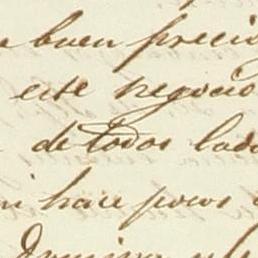 buen precio
este negocio
de todos lado
hace pocos